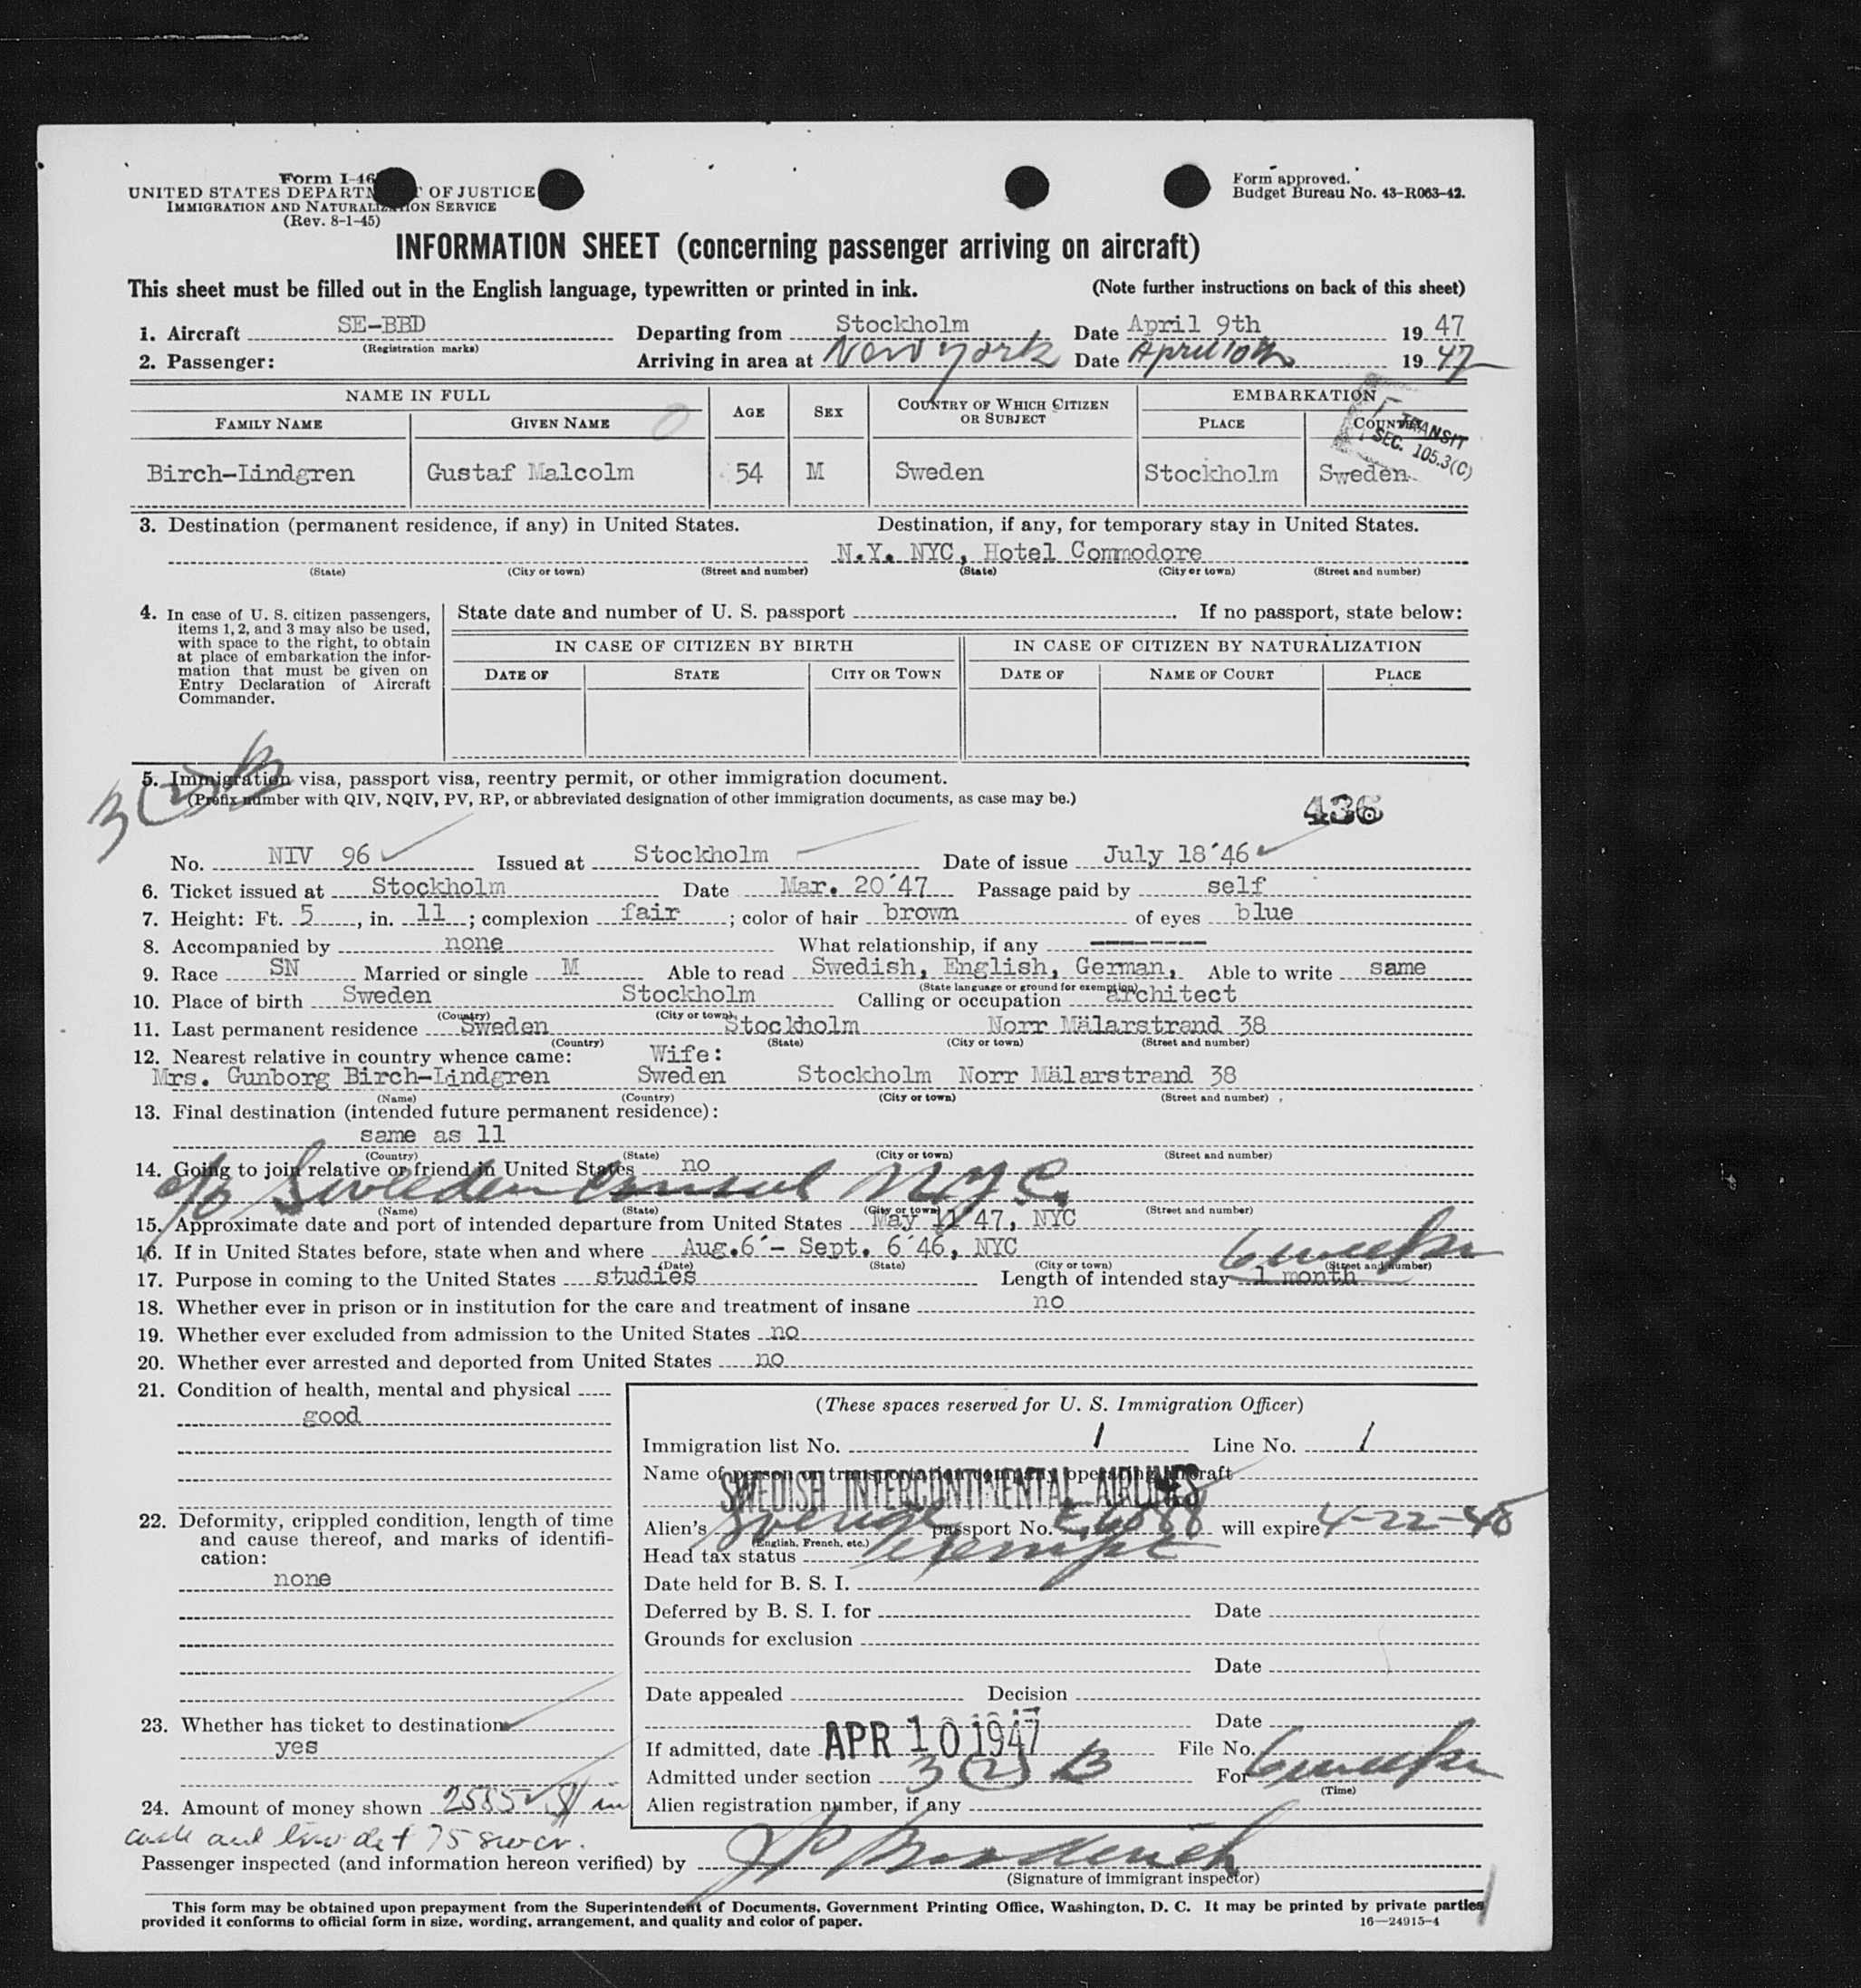 Form I-46
UNITED STATES DEPARTM OF JUSTICE
IMMIGRATION AND NATURALIZATION SERVICE
(Rev. 8-1-45)
Form approved.
Budget Bureau No. 43-R063-42.
INFORMATION SHEET (concerning passenger arriving on aircraft)
This sheet must be filled out in the English language, typewritten or printed in ink. (Note further instructions on back of this sheet)
1. Aircraft SE-BBD Departing from Stockholm Date April 9th 19 47
(Registration marks)
2. Passenger: Arriving in area at New York Date April 10th 19 47
NAME IN FULL AGE SEX COUNTRY OF WHICH CITIZEN OR SUBJECT EMBARKATION
FAMILY NAME GIVEN NAME PLACE COUNTRY
TRANSIT
SEC. 105.3(C)
Birch-Lindgren Gustaf Malcolm 54 M Sweden Stockholm Sweden
3. Destination (permanent residence, if any) in United States. Destination, if any, for temporary stay in United States.
N.Y. NYC, Hotel Commodore
(State) (City or town) (Street and number) (State) (City or town) (Street and number)
4. In case of U. S. citizen passengers, items 1, 2, and 3 may also be used, with space to the right, to obtain at place of embarkation the information that must be given on Entry Declaration of Aircraft Commander.
State date and number of U. S. passport . If no passport, state below:
IN CASE OF CITIZEN BY BIRTH IN CASE OF CITIZEN BY NATURALIZATION
DATE OF STATE CITY OR TOWN DATE OF NAME OF COURT PLACE
3(2)B
5. Immigration visa, passport visa, reentry permit, or other immigration document.
(Prefix number with QIV, NQIV, PV, RP, or abbreviated designation of other immigration documents, as case may be.)
436
No. NIV 96 Issued at Stockholm Date of issue July 18´46
6. Ticket issued at Stockholm Date Mar. 20´47 Passage paid by self
7. Height: Ft. 5, in. 11; complexion fair; color of hair brown of eyes blue
8. Accompanied by none What relationship, if any --------
9. Race SN Married or single M Able to read Swedish, English, German, Able to write same
(State language or ground for exemption)
10. Place of birth Sweden Stockholm Calling or occupation architect
(Country) (City or town)
11. Last permanent residence Sweden Stockholm Norr Mälarstrand 38
(Country) (State) (City or town) (Street and number)
12. Nearest relative in country whence came: Wife:
Mrs. Gunborg Birch-Lindgren Sweden Stockholm Norr Mälarstrand 38
(Name) (Country) (City or town) (Street and number)
13. Final destination (intended future permanent residence):
same as 11
(Country) (State) (City or town) (Street and number)
14. Going to join relative or friend in United States no
c/o Sweden Consul N.Y.C.
(Name) (State) (City or town) (Street and number)
15. Approximate date and port of intended departure from United States May 11´47, NYC
16. If in United States before, state when and where Aug.6´- Sept. 6´46, NYC
6 weeks
(Date) (State) (City or town) (Street and number)
17. Purpose in coming to the United States studies Length of intended stay 1 month
18. Whether ever in prison or in institution for the care and treatment of insane no
19. Whether ever excluded from admission to the United States no
20. Whether ever arrested and deported from United States no
21. Condition of health, mental and physical
good
22. Deformity, crippled condition, length of time and cause thereof, and marks of identification:
none
23. Whether has ticket to destination
yes
24. Amount of money shown
(These spaces reserved for U. S. Immigration Officer)
Immigration list No. 1 Line No. 1
Name of person or transportation company operating aircraft
SWEDISH INTERCONTINENTAL AIRLINES
Alien's passport No. will expire 4-22-48
(English, French, etc.)
Head tax status Exempt
Date held for B. S. I.
Deferred by B. S. I. for Date
Grounds for exclusion
Date
Date appealed Decision
Date
If admitted, date APR 10 1947 File No.
Admitted under section 3 (2) B For 6 weeks
(Time)
Alien registration number, if any
Passenger inspected (and information hereon verified) by
(Signature of immigrant inspector)
This form may be obtained upon prepayment from the Superintendent of Documents, Government Printing Office, Washington, D. C. It may be printed by private parties
provided it conforms to official form in size, wording, arrangement, and quality and color of paper. 16—24915-4